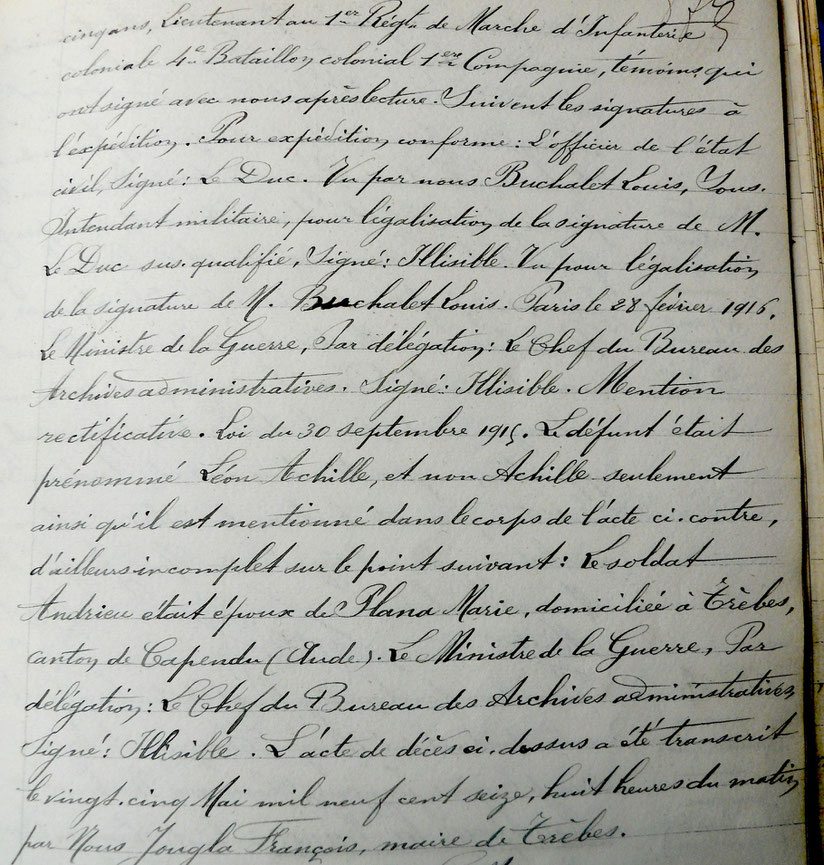 cinq ans, Lieutenant au 1er Régt. de Marche d'Infanterie
coloniale 4e Bataillon colonial 1ere Compagnie, témoins qui
ont signé avec nous après lecture. Suivent les signatures à
l'expédition. Pour expédition conforme: L'officier de l'état
civil, Signé: Le Duc. Vu par nous Buchalet Louis, Sous-
Intendant militaire, pour légalisation de la signature de M.
Le Duc sus-qualifié, Signé: Illisible. Vu pour légalisation
de la signature de M. Buchalet Louis. Paris le 28 février 1916.
Le Ministre de la Guerre, Par délégation: Le Chef du Bureau des
Archives administratives. Signé: Illisible. Mention
rectificative. Loi du 30 septembre 1915. Le défunt était
prénommé Léon Achille, et non Achille seulement
ainsi qu'il est mentionné dans le corps de l'acte ci-contre,
d'ailleurs incomplet sur le point suivant: Le soldat
Andrieu était époux de Plana Marie, domiciliée à Trèbes,
canton de Capendu (Aude). Le Ministre de la Guerre, Par
délégation: Le Chef du Bureau des Archives administratives
Signé: Illisible. L'acte de décès ci-dessus a été transcrit
le vingt-cinq Mai mil neuf cent seize, huit heures du matin
par Nous Jougla François, maire de Trèbes.